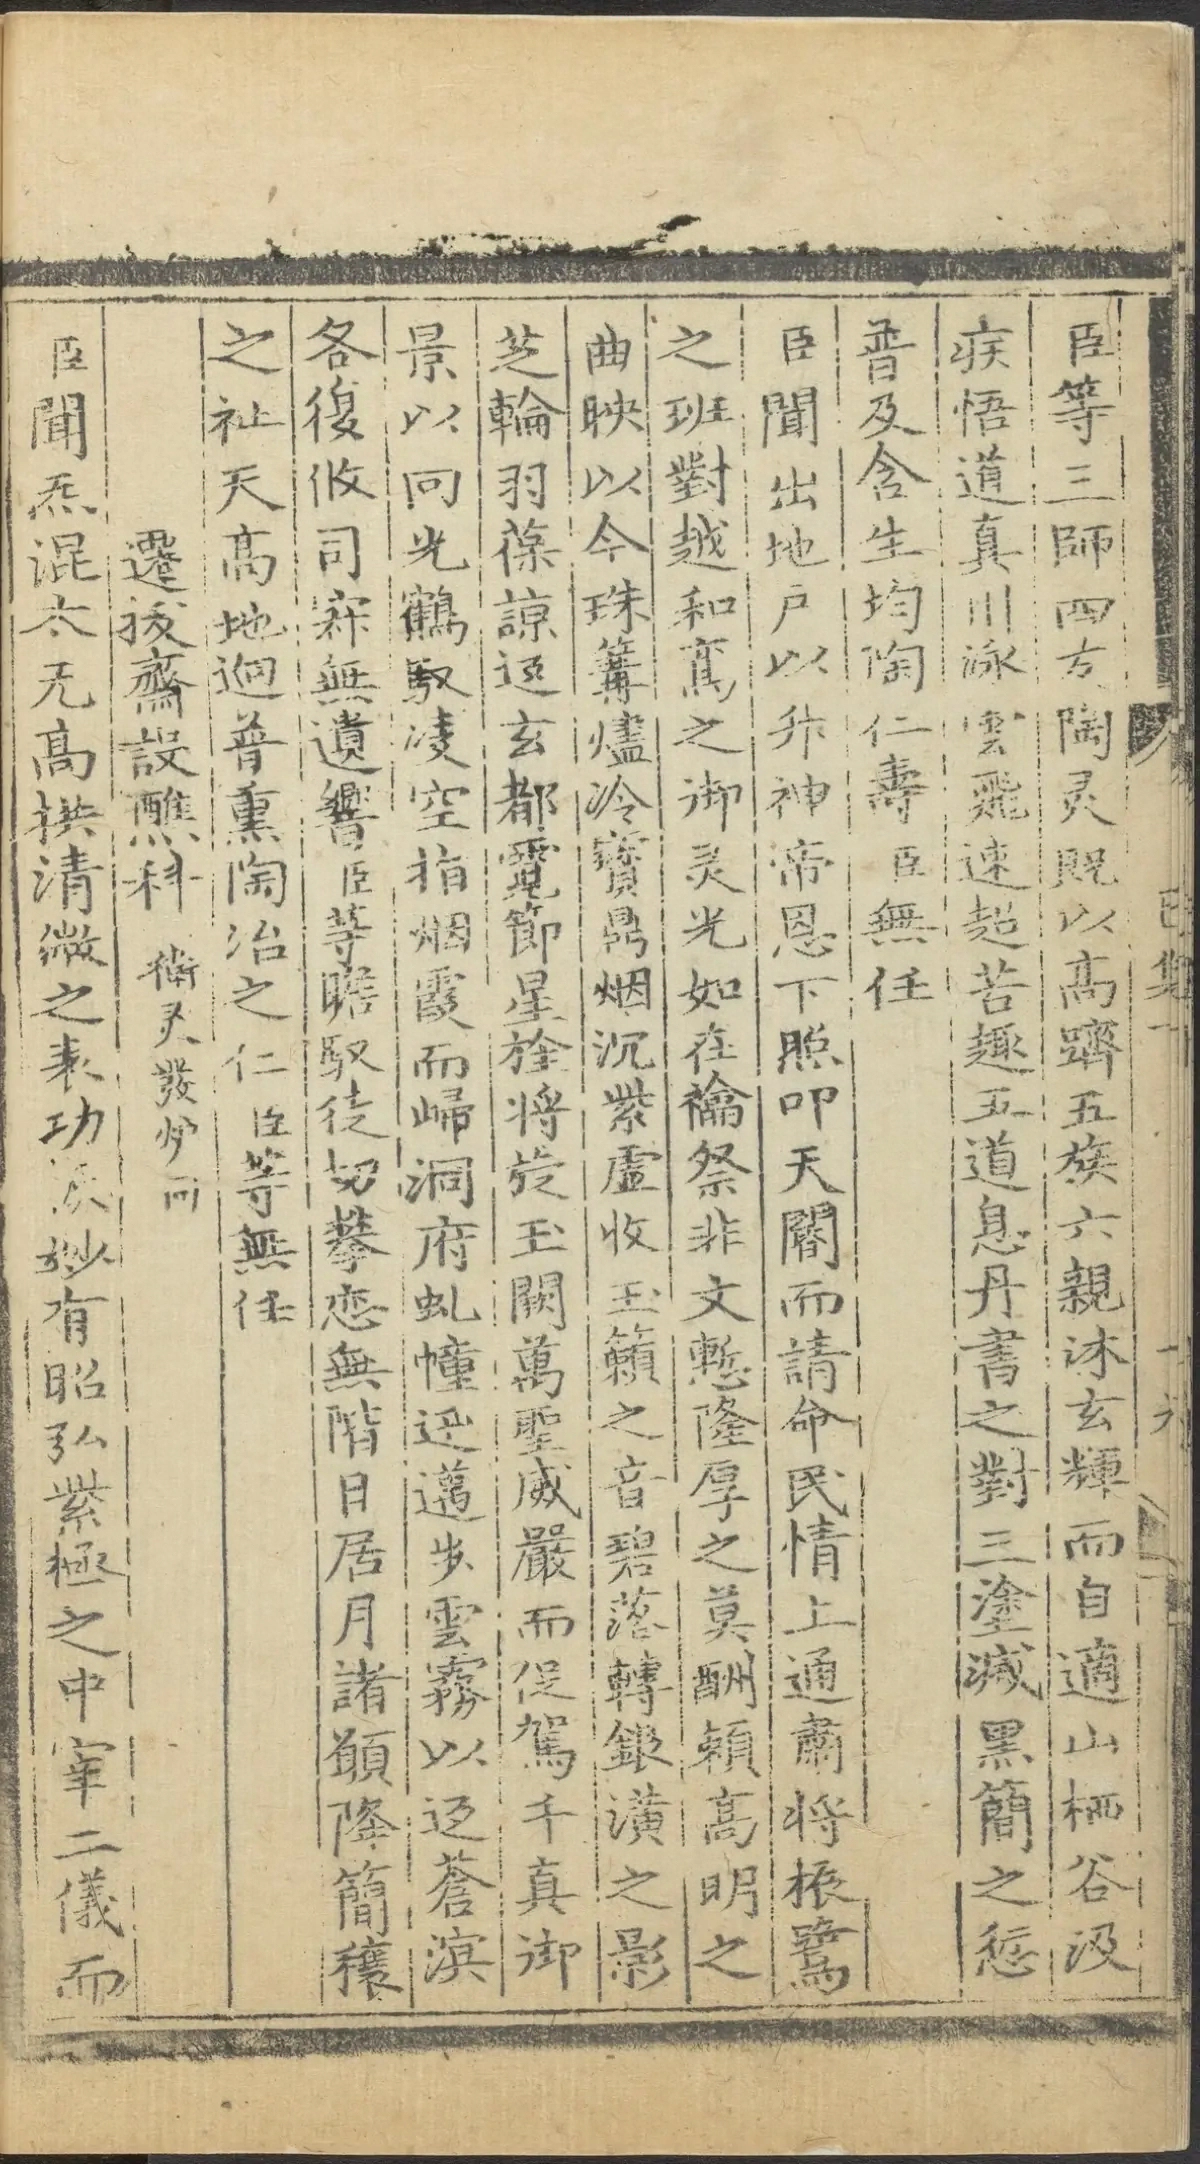 臣等三師四友陶灵貺以高躋五族六親沐玄輝而自適山栖谷汲
疾悟道真川泳雲飛速超苦趣五道息丹書之對三塗滅黑簡之愆
普及含生均陶仁壽臣無任
臣聞出地戶以升神帝恩下照叩天閽而請命民情上通肅將振鷺
之班對越和鸞之御灵光如在禴祭非文慙隆厚之莫酬頼高明之
曲映以今珠篝燼冷寶鼎烟沉紫虛收玉籟之音碧落轉銀潢之影
芝輪羽葆諒返玄都霓節星旌將旋玉闕萬聖威嚴而促駕千真御
景以回光鶴馭凌空指烟霞而歸洞府虬幢迅邁步雲霧以返蒼溟
各復攸司寂無遺響臣等瞻馭徒切攀恋無階日居月諸願降簡穰
之祉天高地迥普熏陶冶之仁臣等無任
遷拔齋設醮科 衛灵發炉同
臣聞炁混太无高拱清微之表功 妙有昭弘紫極之中宰二儀而